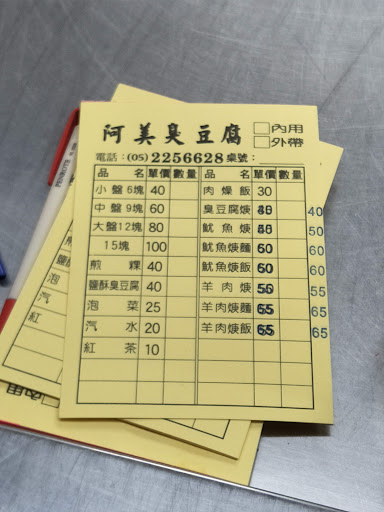 阿美臭豆腐 □內用
□外帶
電話：(05)2256628 桌號：
品名 單價 數量 品名 單價 數量
小盤6塊 40 肉燥飯 30
中盤9塊 60 臭豆腐焿 40
大盤12塊 80 魷魚焿 50
15塊 100 魷魚焿麵 60 60
煎粿 40 魷魚焿飯 60 60
鹽酥臭豆腐 40 羊肉焿 55
泡菜 25 羊肉焿麵 65
汽水 20 羊肉焿飯 65
紅茶 10
泡
汽
紅